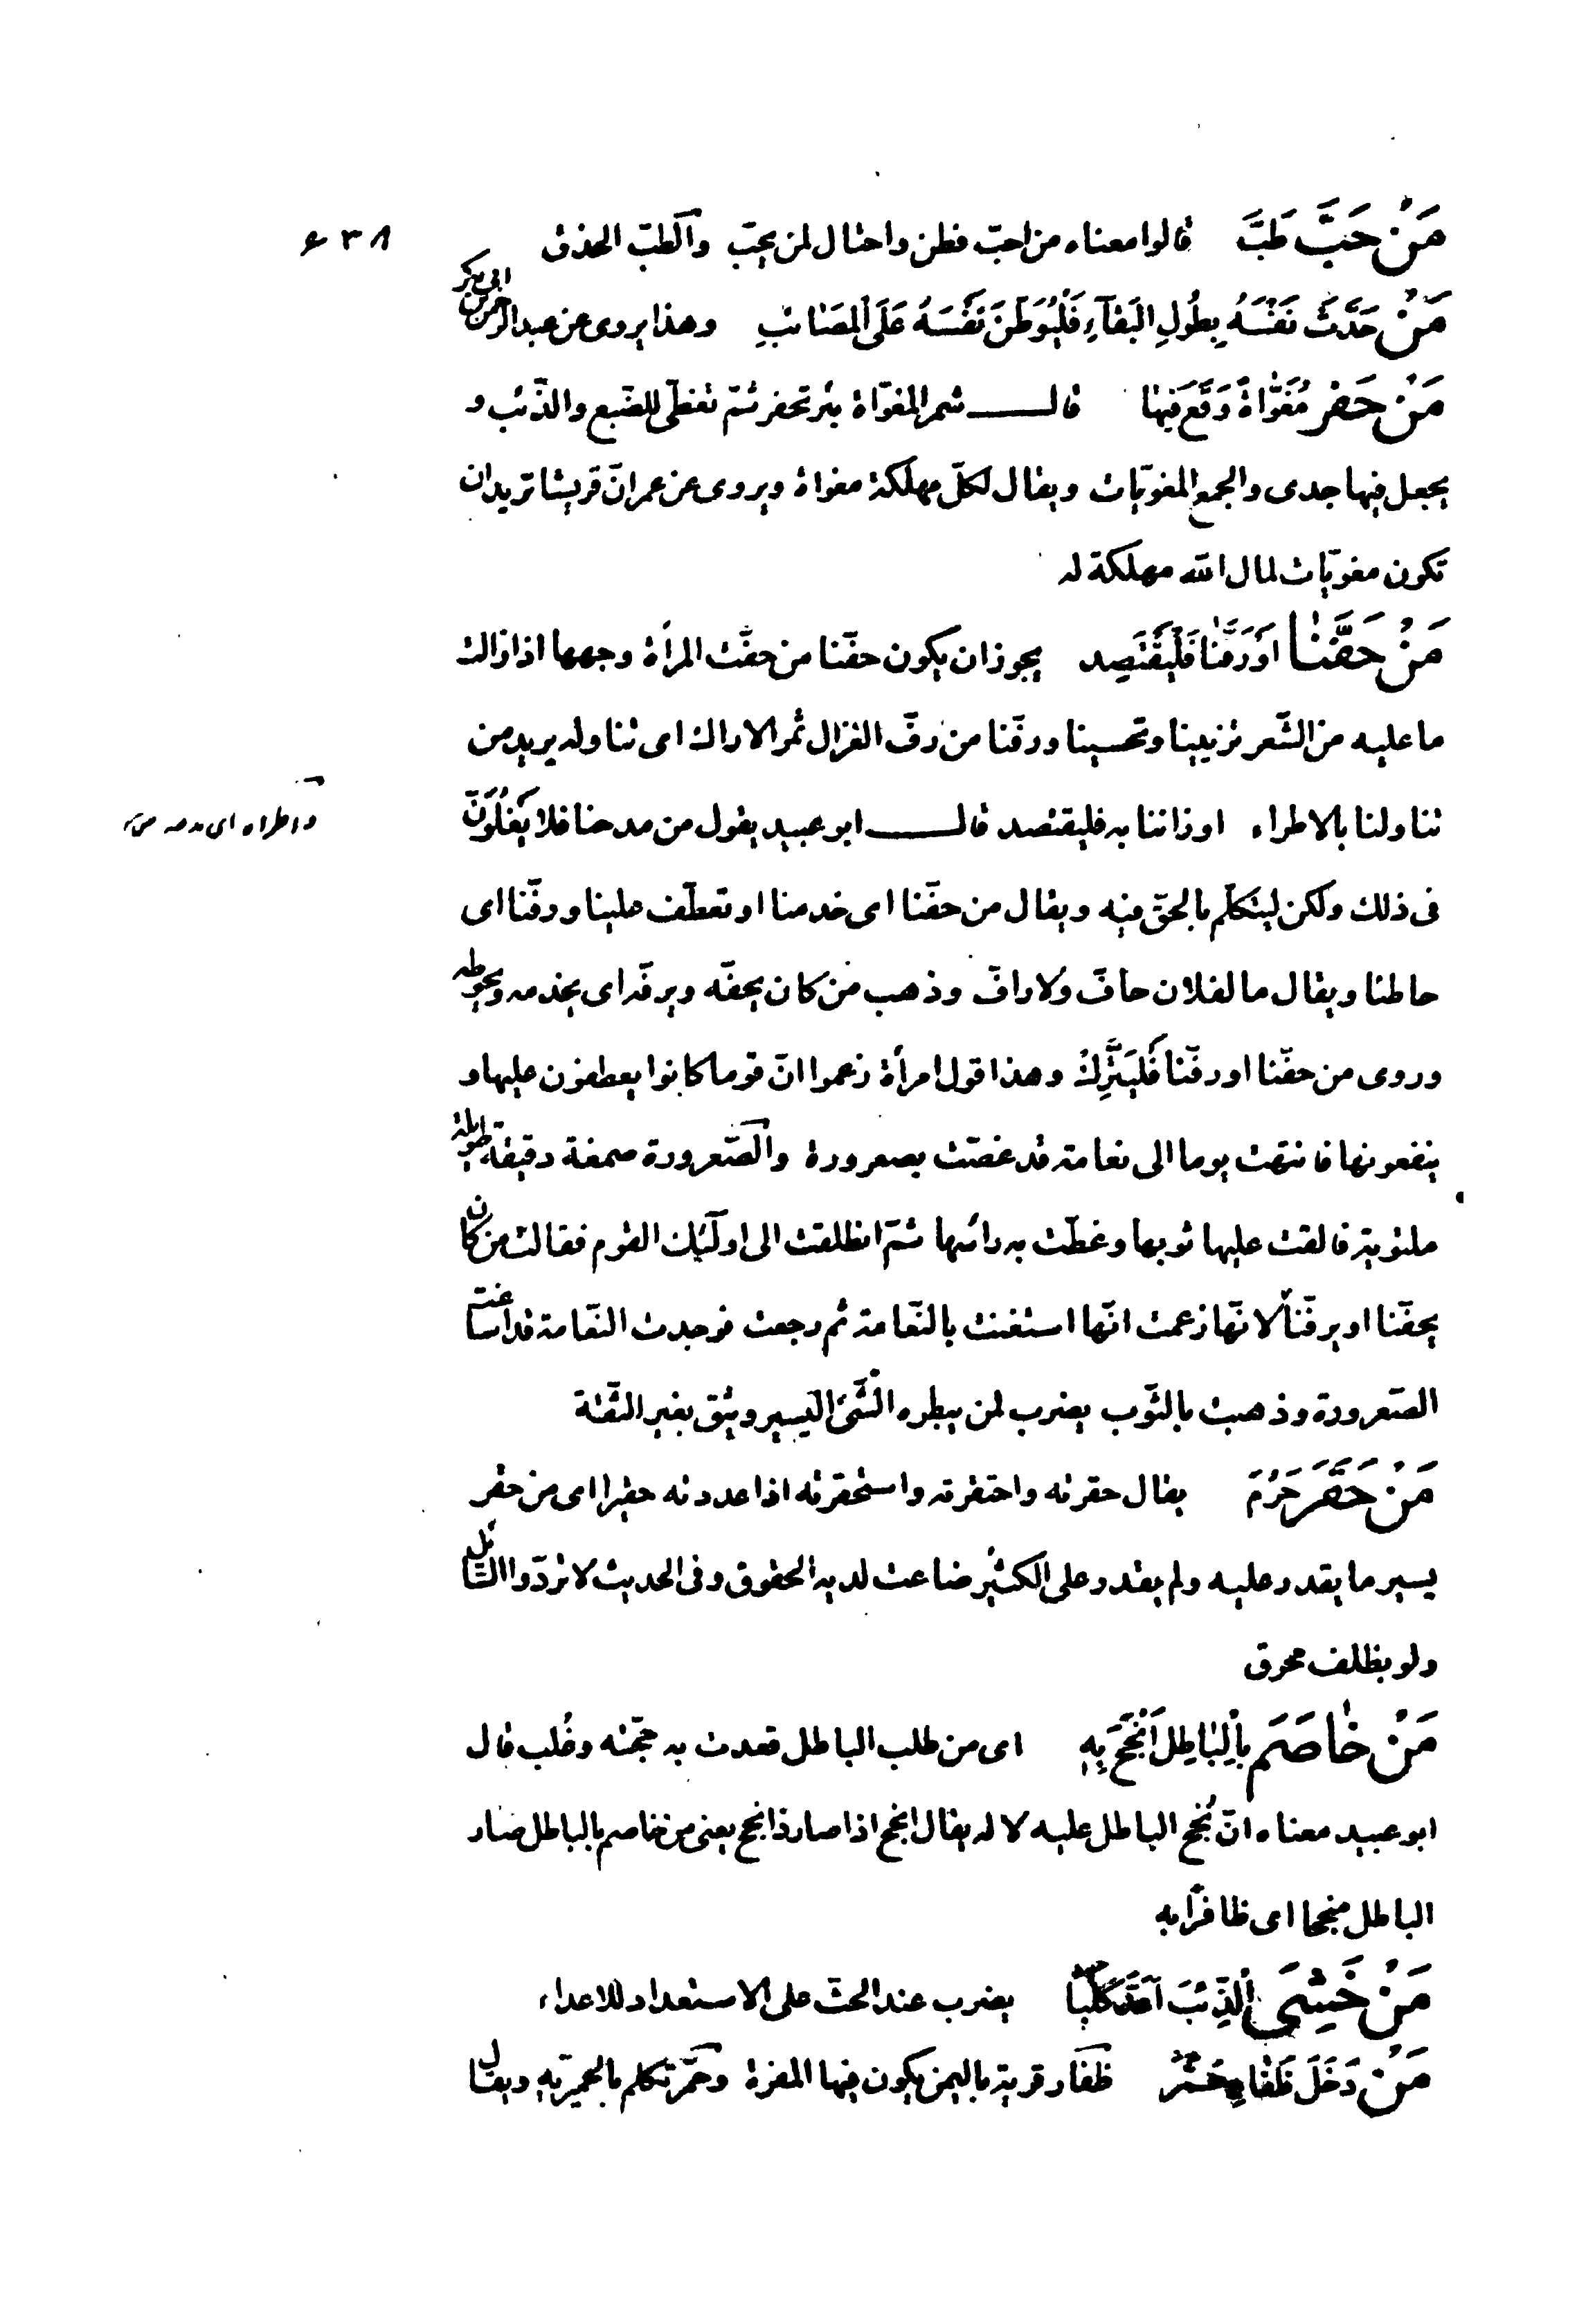 ۶۳۸
مَنْ حَبَّ طَبَّ قالوا معناه من احبّ فطن واحتال لمن يحبّ والطبّ الحذق
مَنْ حَدَّثَ نَفْسَهُ بِطُولِ البَقآءِ فَلْيُوَطِّنْ نَفْسَهُ عَلَى المَصَائبِ وهذا يروى عن عبد الرحمن بن ابى بكر
مَنْ حَفَر مُغَوَّاةً وَقَعَ فيها قال شمر المغوّاة بئر تحفر ثمّ تغطّى للضّبع والذّئب و
يجعل فيها جدى والجمع المغويّات ويقال لكلّ مهلكة مغواة ويروى عن عمر انّ قريشا تريد ان
تكون مغويّات لمال الله مهلكة له
مَنْ حَفَّنا اَوْ رَفَّنا فَلْيَقْتَصِد يجوز ان يكون حفّنا من حفّت المرأة وجهها اذا ازالت
ما عليه من الشّعر تزيينا وتحسينا ورفّنا من رفّ الغزال ثمر الاراك اى تناوله يريد من
تناولنا بالاطراء او زاننا به فليقتصد قال ابو عبيد يقول من مدحنا فلا يَغْلُوَنّ
واطراه اى مدحه
فى ذلك ولكن ليتكلّم بالحقّ فيه ويقال من حفّنا اى خدمنا او تعطّف علينا ورفّنا اى
حاطنا ويقال ما لفلان حافّ ولا رافّ وذهب من كان يحفّه ويرفّه اى يخدمه ويحوطه
وروى من حفّنا او رفّنا فَلْيَتَّرِكْ وهذا قول امرأة زعموا انّ قوما كانوا يعطفون عليها و
ينفعونها فانتهت يوما الى نعامة قد غصّت بصعرورة والصّعرورة صمغة دقيقة طويلة
ملتوية فالقت عليها ثوبها وغطّت به رأسها ثمّ انطلقت الى اولئك القوم فقالت من كان
يحفّنا او يرفّنا لانّها زعمت انّها استغنت بالنّعامة ثم رجعت فوجدت النّعامة قد اساغت
الصّعرورة وذهبت بالثّوب يضرب لمن يبطره الشّئ اليسير ويثق بغير الثّقة
مَنْ حَقَرَ حَرَمَ يقال حقرته واحتقرته واستحقرته اذا عددته حقيرا اى من حقر
يسير ما يقدر عليه ولم يقدر على الكثير ضاعت لديه الحقوق وفى الحديث لا تردّوا السّائل
ولو بظلف محرق
مَنْ خاصَمَ بِالْباطِلِ اَنْجَحَ بِهِ اى من طلب الباطل قعدت به حجّته وغُلب قال
ابو عبيد معناه انّ نُجح الباطل عليه لا له يقال انجح اذا صار ذا نجح يعنى من خاصم بالباطل صار
الباطل منجحا اى ظافرا به
مَنْ خَشِىَ الْذِّئبَ اَعَدَّ كَلْبًا يضرب عند الحثّ على الاستعداد للاعداء
مَنْ دَخَلَ ظَفارِ حَمَّرَ ظفار قرية باليمن يكون فيها المغرة وحمّر تكلم بالحميريّة ويقال